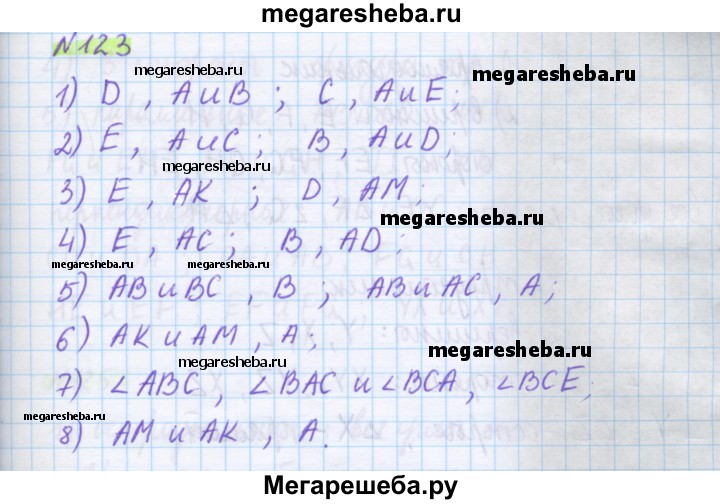 megaresheba.ru
N123
megaresheba.ru
megaresheba.ru
1) D, AиB; C, AиE;
megaresheba.ru
2) E, AиC; B, AиD;
megaresheba.ru
3) E, AK; D, AM;
megaresheba.ru
4) E, AC; B, AD;
megaresheba.ru megaresheba.ru
5) ABиBC, B; ABиAC, A;
6) AKиAM, A;
megaresheba.ru
7) ∠ABC, ∠BAC и ∠BCA, ∠BCE;
megaresheba.ru
8) AM и AK, A.
Мегарешеба.ру